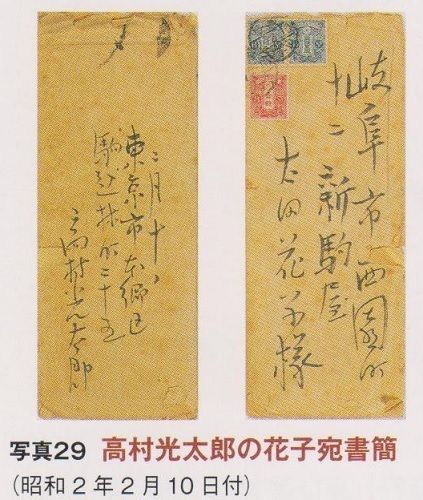 岐阜市西園町
十二 新駒屋
太田花子様
二月十日
東京市本郷区
駒込林町二十五
高村光太郎
写真29 高村光太郎の花子宛書簡
(昭和2年2月10日付)